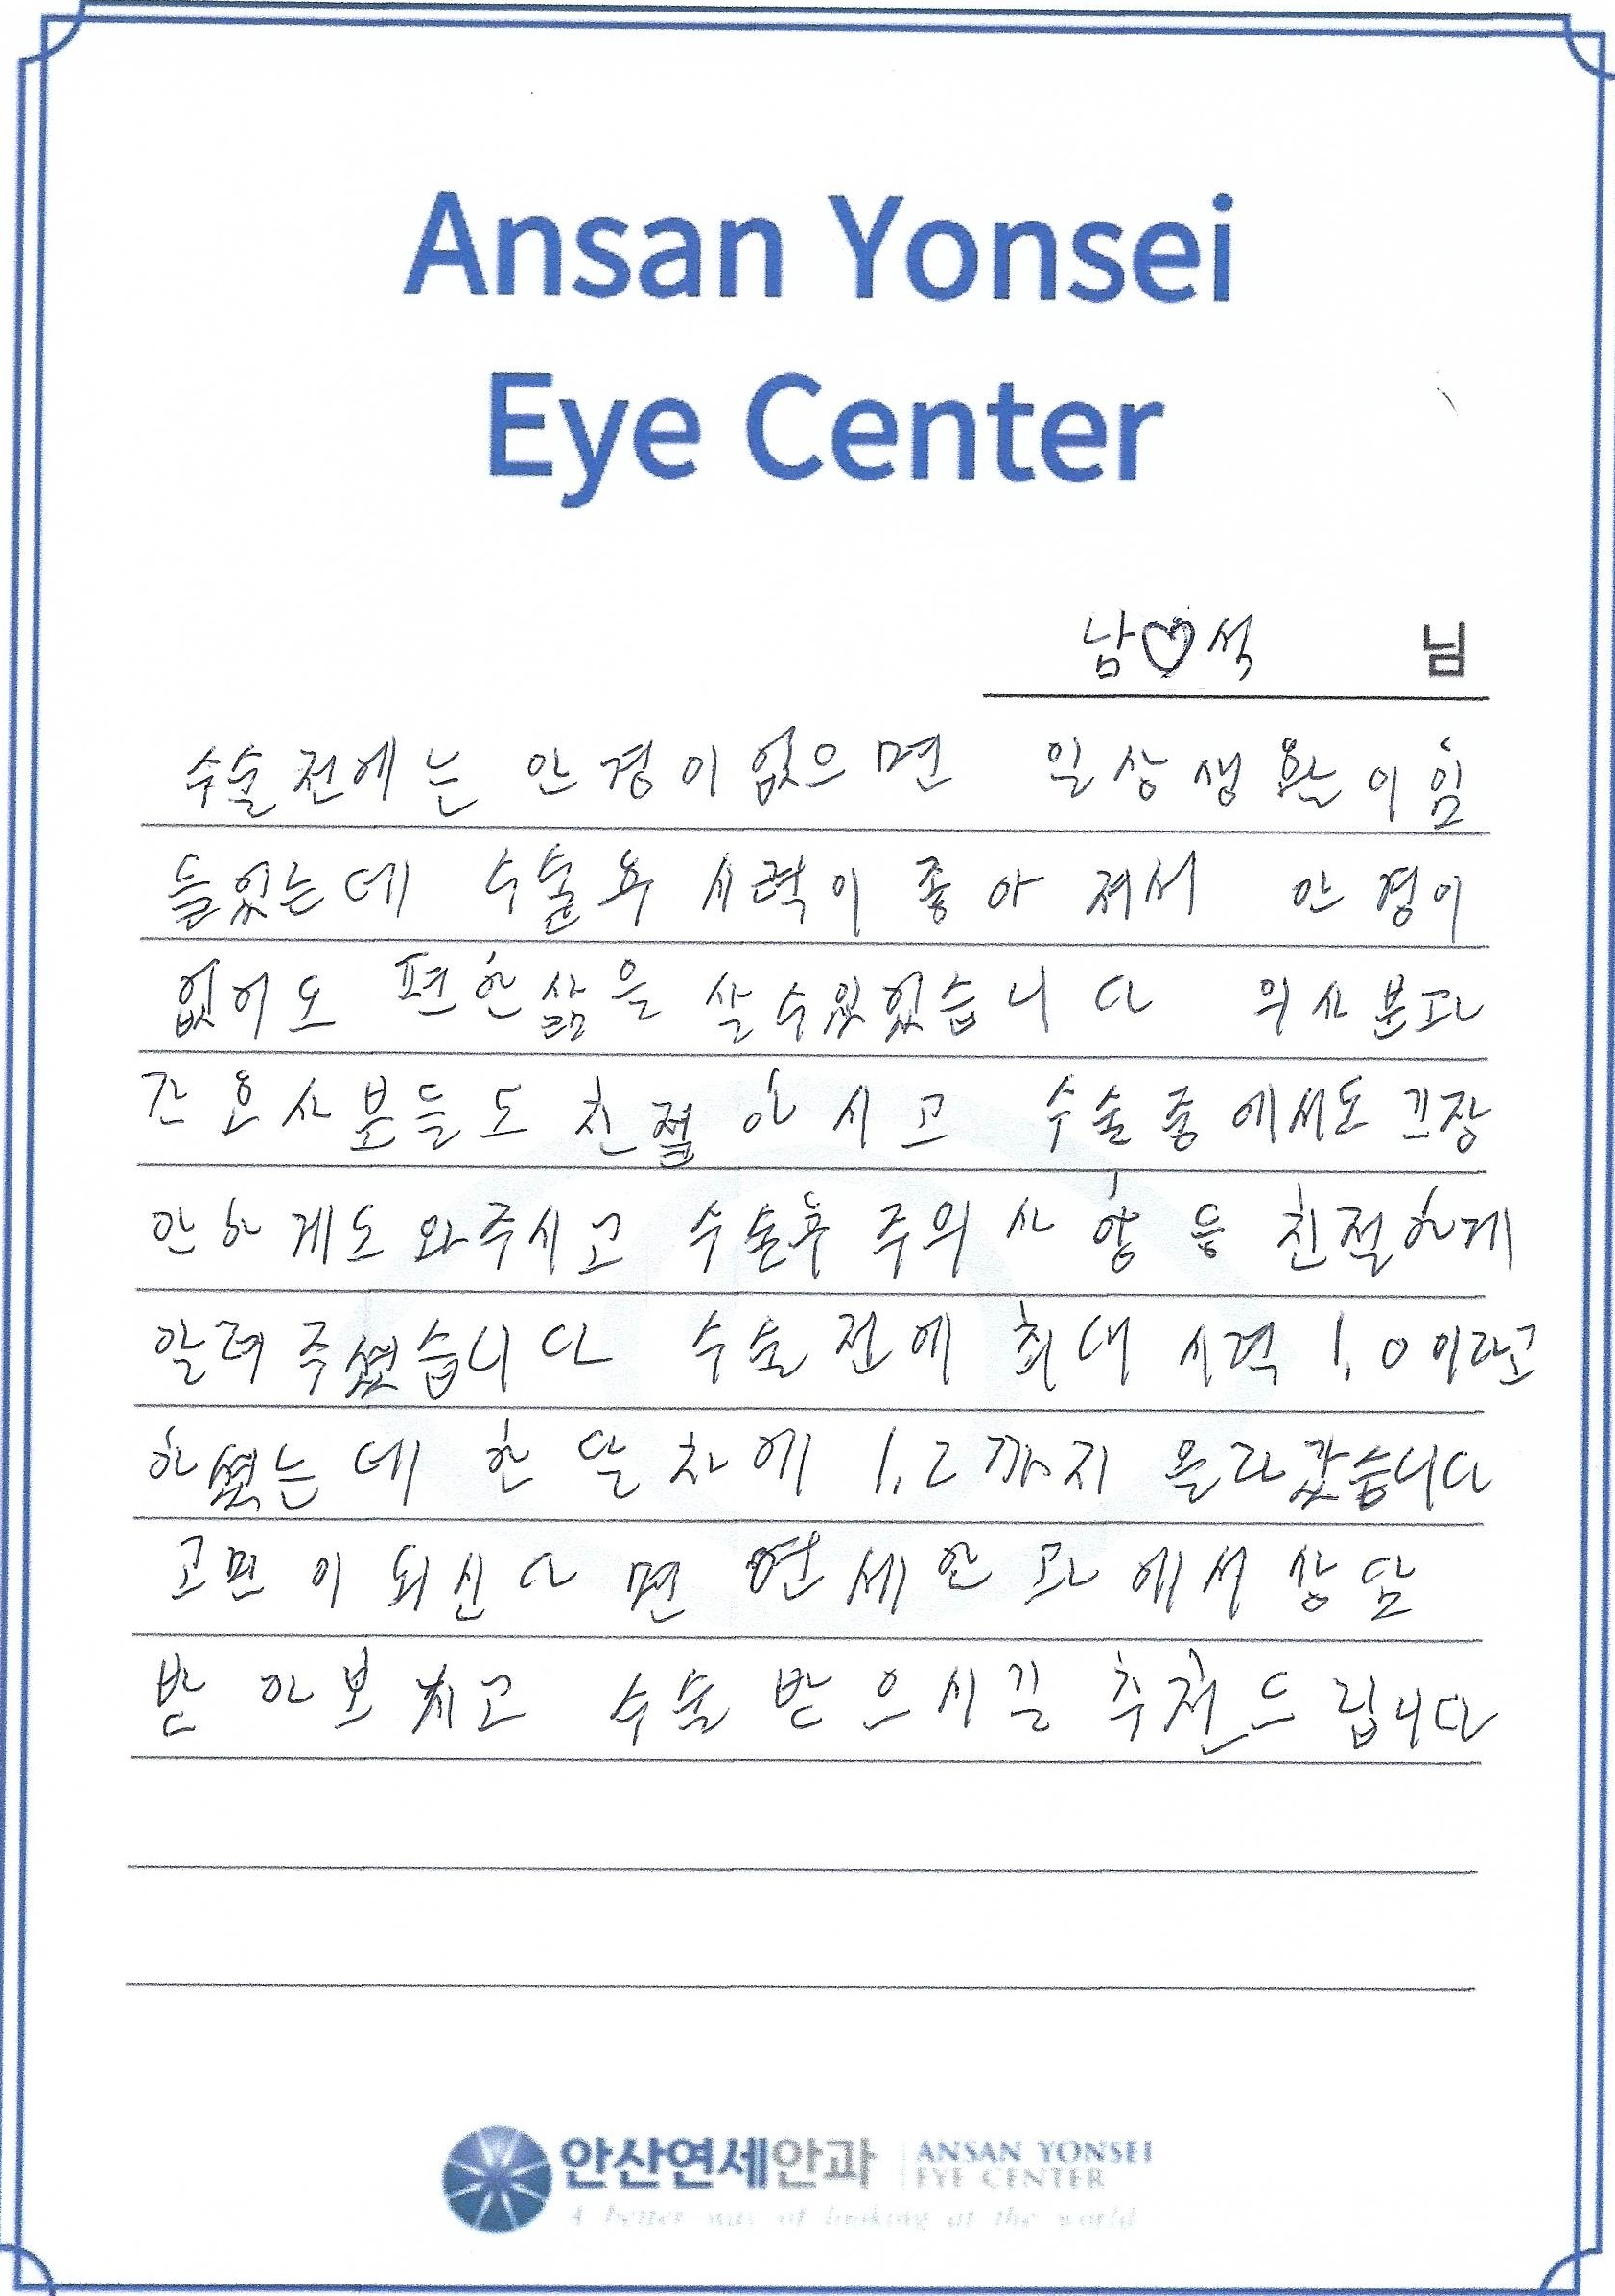 Ansan Yonsei
Eye Center
남♡석 님
수술전에는 안경이 없으면 일상생활이 힘
들었는데 수술후 시력이 좋아져서 안경이
없어도 편한삶을 살수있었습니다 의사분과
간호사분들도 친절하시고 수술중에서도 긴장
안하게도와주시고 수술후 주의사항 등 친절하게
알려주셨습니다 수술전에 최대 시력 1.0이라고
하셨는데 한달차에 1.2까지 올라갔습니다
고민이 되신다면 연세안과에서 상담
받아보시고 수술 받으시길 추천드립니다
안산연세안과 ANSAN YONSEI
EYE CENTER
A better way of looking at the world